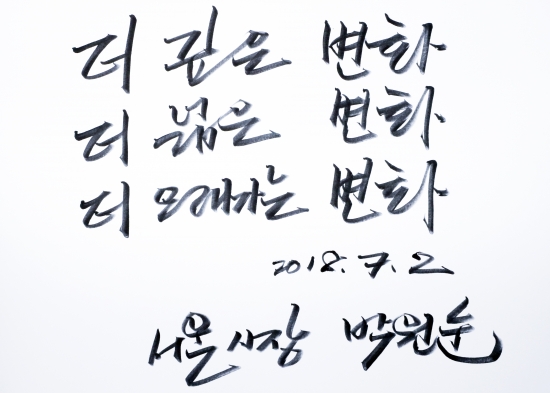 더 깊은 변화
더 넓은 변화
더 오래가는 변화
2018. 7. 2
서울시장 박원순